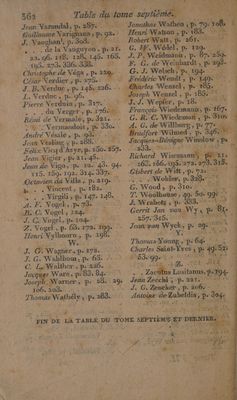 362 Table du tome septième.
Jean Varandal, p. 287.
Guillaume Varignana, p. 92.
J. Vaughan, p. 308.
de la Vauguyon, p. 21.
22. 96. 118. 128. 145. 165.
195. 273. 336. 338.
Christophe de Véga, p. 229.
César Verdier, p. 276.
J. B. Verduc, p. 146. 226.
L. Verduc, p. 96.
Pierre Verduin, p. 317.
du Verger, p. 196.
Rémi de Vermale, p. 321.
Vermandois, p. 330.
André Vésale, p. 93.
Jean Vesling, p. 288.
Félix Vicq d'Azyr, p. 250. 257.
Jean Vigier, p. 21. 42.
Jean de Vigo, p. 12. 43. 94.
115. 189. 192. 314. 337.
Octavien da Villa, p. 219.
Vincent, p. 182.
Virgili, p. 147. 148.
A. F. Vogel, p. 78.
B. C. Vogel, p. 124.
J. C. Vogel, p. 104.
Z. Vogel, p. 63. 172. 199.
Henri Vylhoorn, p. 198.
W.
J. G. Wagner, p. 172.
J. G. Wahlbom, p. 63.
C. L. Walther, p. 226.
Jacque Ware, p. 83. 84.
Joseph Warner, p. 28. 29.
106. 203.
Thomas Wathely, p. 283.
Jonathas Wathen, p. 79. 108.
Henri Watson, p. 183.
Robert Watt, p. 261.
G. W. Wedel, p. 129.
J. P. Weidmann, p. 67. 282.
B. G. de Weinhardt, p. 298.
G. J. Welsch, p. 194.
Frédéric Wendt, p. 149.
Charles Wenzel, p. 185.
Joseph Wenzel, p. 186.
J. J. Wepfer, p. 18.
François Wiedemann, p. 167.
G. R. C. Wiedeman, p. 310.
A. G. de Willburg, p. 77.
Bradford Wilmed, p. 346.
Jacques-Bénigne Winslow, p.
233.
Richard Wisemann, p. 21.
163. 186. 195. 272. 273. 318.
Gisbert de Witt, p. 71.
Wohler, p. 328.
G. Wood, p. 310.
T. Woolhouse, p. 50. 99.
J. Wrabetz, p. 333.
Gerrit Jan van Wy, p. 87.
257. 345.
Jean van Wyck, p. 29.
Y.
Thomas Young, p. 64.
Charles Saint-Yves, p. 49. 52.
53. 99.
Z.
Zacutus Lusitanus, p. 194.
Jean Zecchi, p. 221.
J. G. Zencker, p. 206.
Antoine de Zubeldia, p. 304.
FIN DE LA TABLE DU TOME SEPTIÈME ET DERNIER.